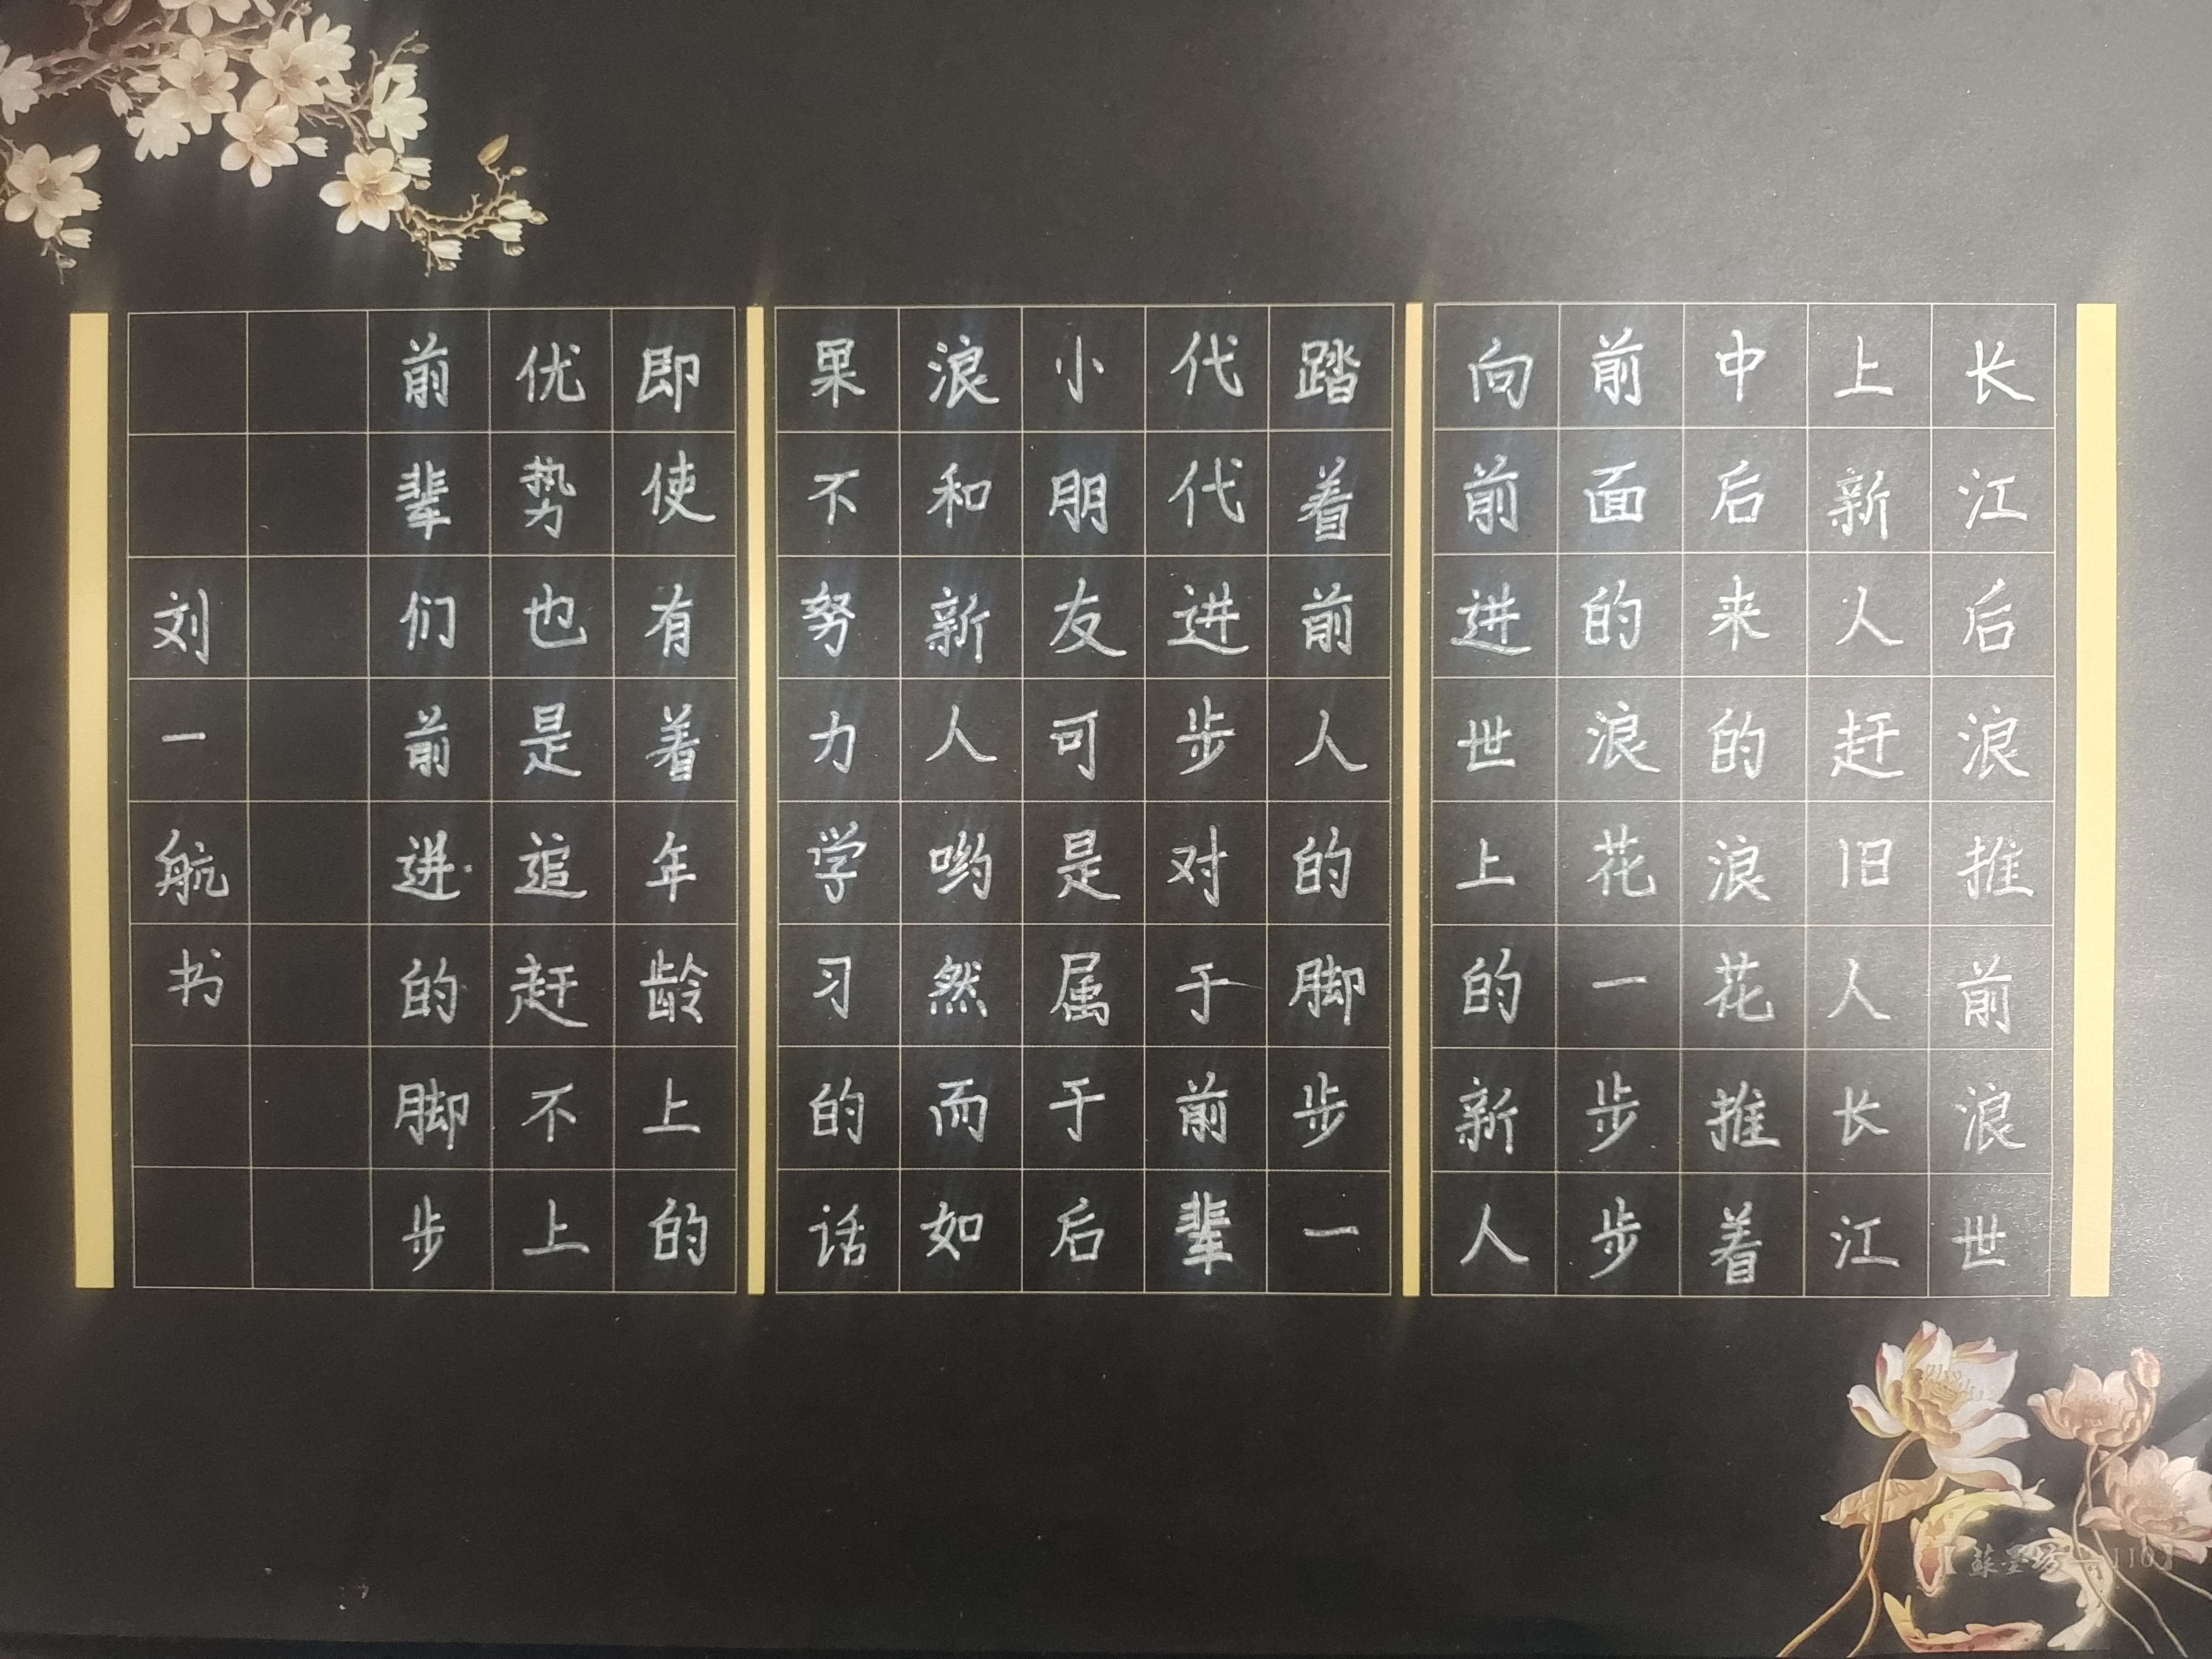 长江后浪推前浪世
上新人赶旧人长江
中后来的浪花推着
前面的浪花一步步
向前进世上的新人
踏着前人的脚步一
代代进步对于前辈
小朋友可是属于后
浪和新人哟然而如
果不努力学习的话
即使有着年龄上的
优势也是追赶不上
前辈们前进的脚步
刘一航书
【蘇墨坊—110】